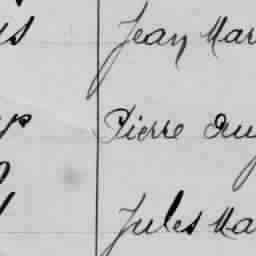 Jean Mar
Pierre Au
Jules Ma